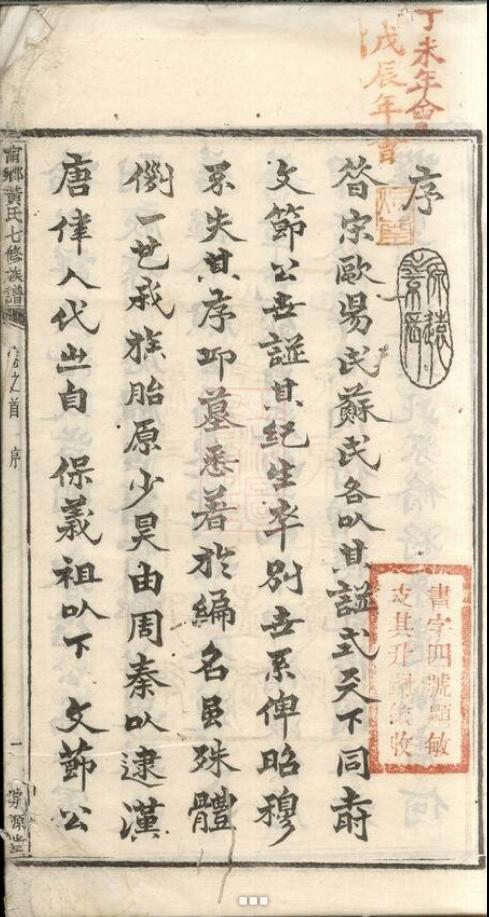 丁未年會
戊辰年會
序
昔宋歐陽氏蘇氏各以其譜式天下同時
文節公世譜其紀生卒別世系俾昭穆
不失其序邱墓悉著於編名雖殊體
例一也我族胎原少昊由周秦以逮漢
唐偉人代出自保義祖以下文節公
書字四號顯敏
支其升嗣續收
甯鄉黃氏七修族譜
卷之首 序
一
源堂